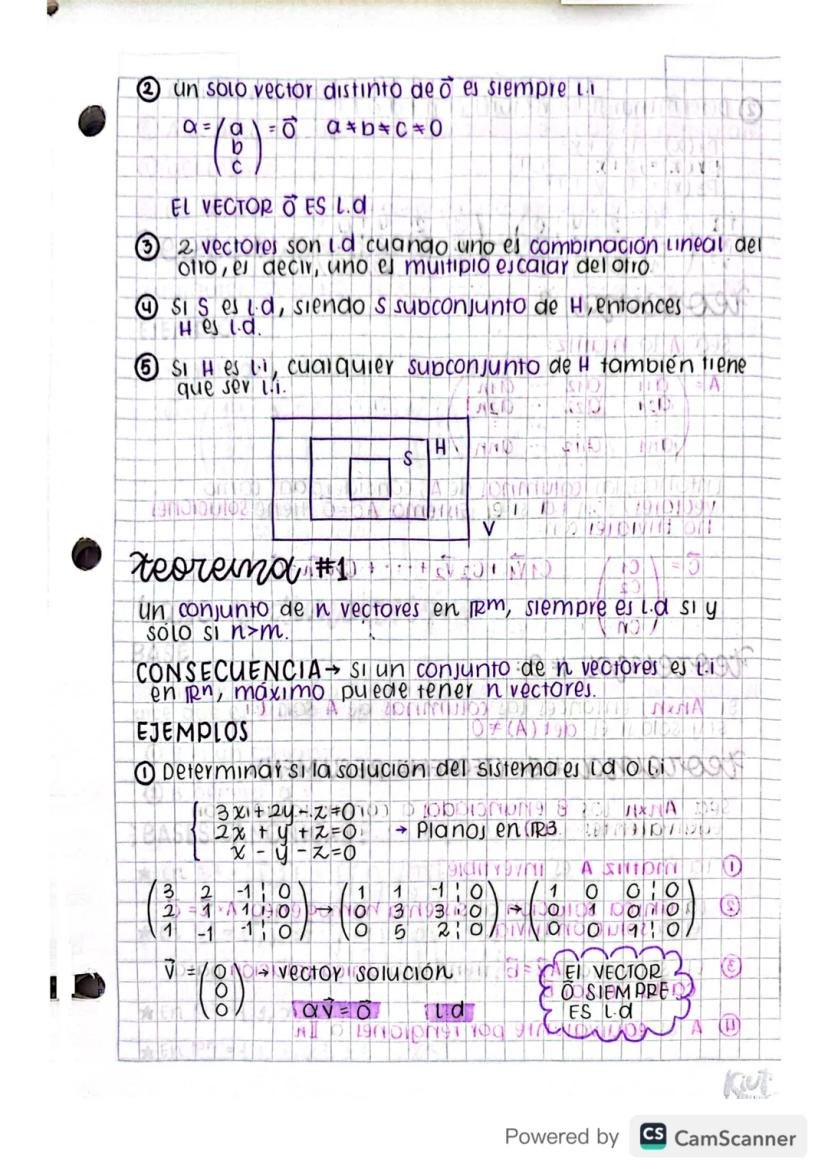 ② un solo vector distinto de o⃗ es siempre l.i
α = ( a b c ) = o⃗ a ≠ b ≠ c ≠ 0
EL VECTOR O⃗ ES L.d
③ 2 vectores son l.d cuando uno es combinación lineal del
otro, es decir, uno es multiplo escalar del otro.
④ Si S es l.d, siendo S subconjunto de H, entonces
H es l.d.
⑤ Si H es l.i, cualquier subconjunto de H también tiene
que ser l.i.
H
S
V
teorema #1
Un conjunto de n vectores en Rm, siempre es l.d si y
sólo si n>m.
CONSECUENCIA → si un conjunto de n vectores es l.i
en Rn, máximo puede tener n vectores.
EJEMPLOS
① Determinar si la solución del sistema es l.d o l.i
3x + 2y - z = 0
2x + y + z = 0 → Planos en R3
x - y - z = 0
( 3 2 -1 ¦ 0 ) ( 1 1 -1 ¦ 0 ) ( 1 0 0 ¦ 0 )
( 2 1 1 ¦ 0 ) → ( 0 3 3 ¦ 0 ) → ( 0 1 0 ¦ 0 )
( 1 -1 -1 ¦ 0 ) ( 0 5 2 ¦ 0 ) ( 0 0 1 ¦ 0 )
V⃗ = ( 0 0 0 ) → vector solución
αv⃗ = o⃗ l.d
El VECTOR
O⃗ SIEMPRE
ES L.d
Kiut
Powered by CS CamScanner